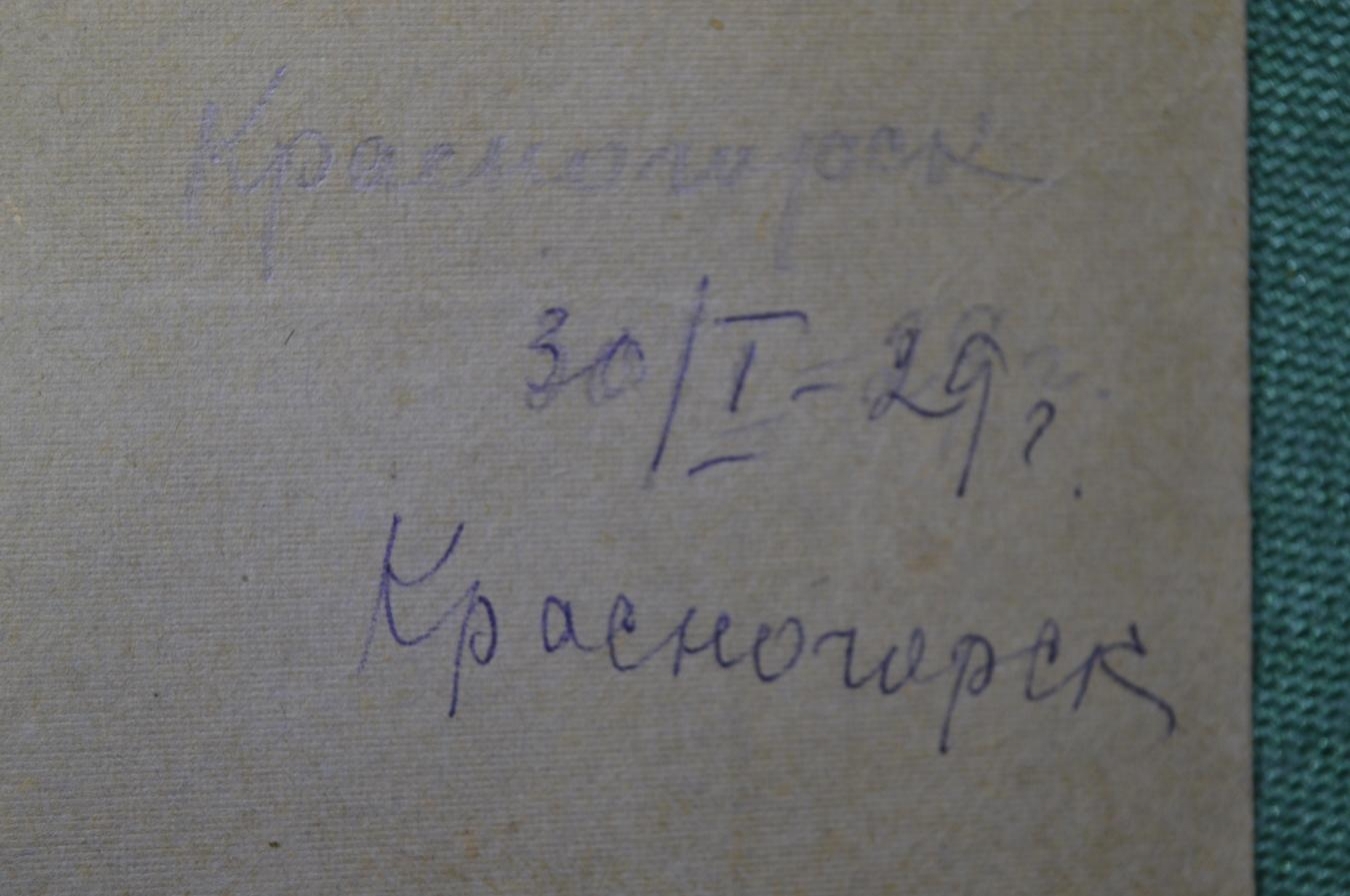 Красногорск
30/I=29 г.
Красногорск